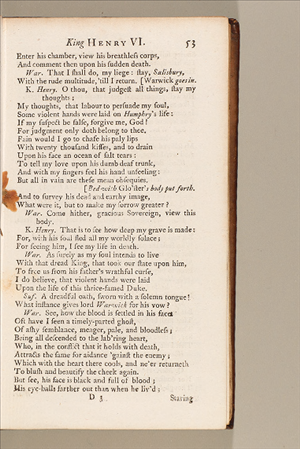 King HENRY VI. 53
Enter his chamber, view his breathleſs corps,
And comment then upon his ſudden death.
War. That I ſhall do, my liege: ſtay, Salisbury,
With the rude multitude, 'till I return. [Warwick goes in.
K. Henry. O thou, that judgeſt all things, ſtay my
thoughts;
My thoughts, that labour to perſuade my ſoul,
Some violent hands were laid on Humphry's life:
If my ſuſpect be falſe, forgive me, God!
For judgment only doth belong to thee.
Fain would I go to chafe his paly lips
With twenty thouſand kiſſes, and to drain
Upon his face an ocean of ſalt tears:
To tell my love upon his dumb deaf trunk,
And with my fingers feel his hand unfeeling:
But all in vain are theſe mean obſequies.
[Bed with Glo'ſter's body put forth.
And to ſurvey his dead and earthy image,
What were it, but to make my ſorrow greater?
War. Come hither, gracious Sovereign, view this
body.
K. Henry. That is to ſee how deep my grave is made:
For, with his ſoul fled all my worldly ſolace;
For ſeeing him, I ſee my life in death.
War. As ſurely as my ſoul intends to live
With that dread King, that took our ſtate upon him,
To free us from his father's wrathful curſe,
I do believe, that violent hands were laid
Upon the life of this thrice-famed Duke.
Suf. A dreadful oath, ſworn with a ſolemn tongue!
What inſtance gives lord Warwick for his vow?
War. See, how the blood is ſettled in his face
Oft have I ſeen a timely-parted ghoſt,
Of aſhy ſemblance, meager, pale, and bloodleſs;
Being all deſcended to the lab'ring heart,
Who, in the conflict that it holds with death,
Attracts the ſame for aidance 'gainſt the enemy;
Which with the heart there cools, and ne'er returneth
To bluſh and beautify the cheek again.
But ſee, his face is black and full of blood;
His eye-balls farther out than when he liv'd;
D 3 Staring